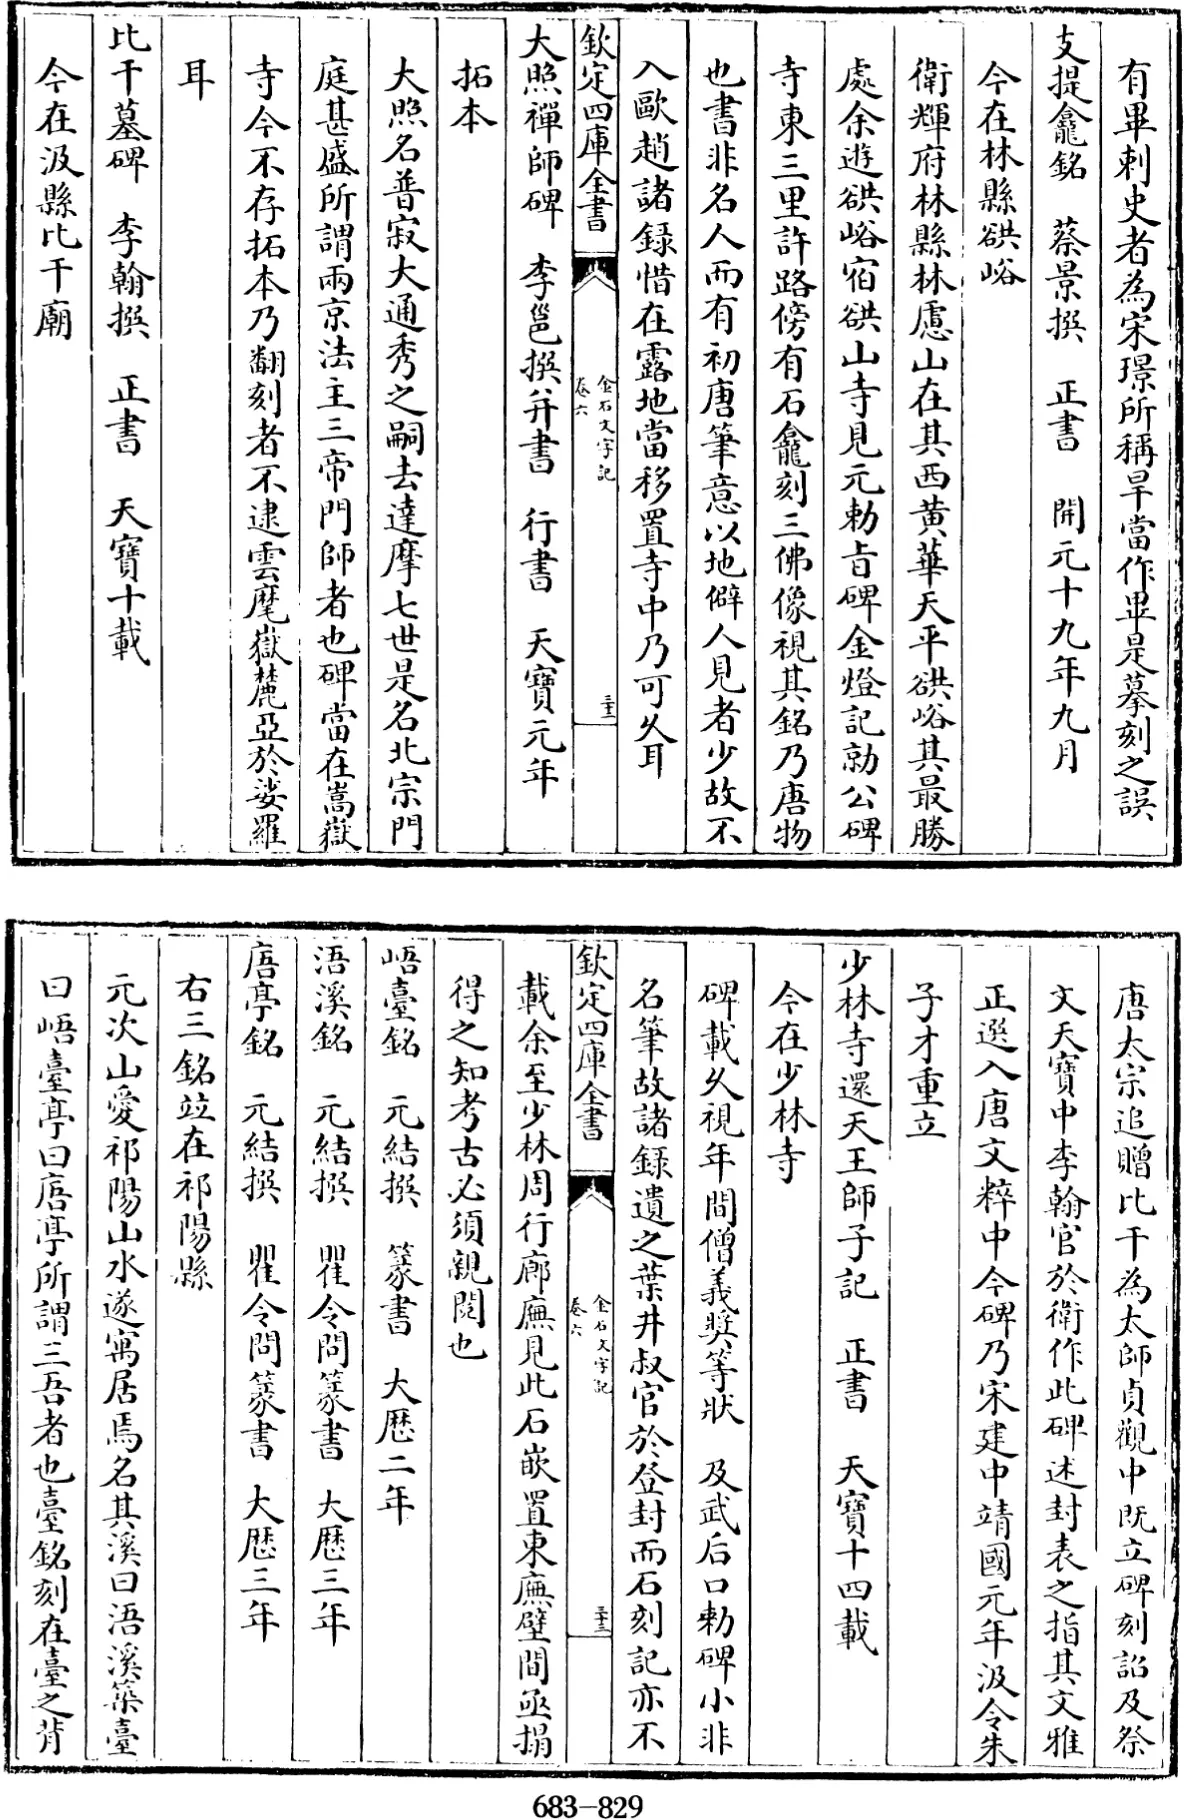 有𭺾刺史者為宋璟所稱旱當作𭺾是摹刻之誤
支提龕銘　蔡景撰　正書　開元十九年九月
今在林縣谼峪
衛輝府林縣林慮山在其西黄華天平谼峪其最勝
處余遊谼峪宿谼山寺見元勅㫖碑金燈記勍公碑
寺東三里許路傍有石龕刻三佛像視其銘乃唐物
也書非名人而有初唐筆意以地僻人見者少故不
入歐趙諸録惜在露地當移置寺中乃可久耳
欽定四庫全書
金石文字記
卷六
三十二
大照禪師碑　李邕撰并書　行書　天寶元年
拓本
大照名普寂大通秀之嗣去達摩七世是名北宗門
庭甚盛所謂兩京法主三帝門師者也碑當在嵩嶽
寺今不存拓本乃翻刻者不逮雲麾嶽麓亞於娑羅
耳
比干墓碑　李翰撰　正書　天寶十載
今在汲縣比干廟
唐太宗追贈比干為太師貞觀中既立碑刻詔及祭
文天寶中李翰官於衛作此碑述封表之指其文雅
正選入唐文粹中今碑乃宋建中靖國元年汲令朱
子才重立
少林寺還天王師子記　正書　天寶十四載
今在少林寺
碑載久視年間僧義奬等狀　及武后口勅碑小非
名筆故諸録遺之葉井叔官於登封而石刻記亦不
欽定四庫全書
金石文字記
卷六
三十三
載余至少林周行廊廡見此石嵌置東廡壁間亟搨
得之知考古必須親閱也
峿臺銘　元結撰　篆書　大厯二年
浯溪銘　元結撰　瞿令問篆書　大厯三年
㾿亭銘　元結撰　瞿令問篆書　大厯三年
右三銘竝在祁陽縣
元次山愛祁陽山水遂寓居焉名其溪曰浯溪築臺
曰峿臺亭曰㾿亭所謂三吾者也臺銘刻在臺之背
683-829